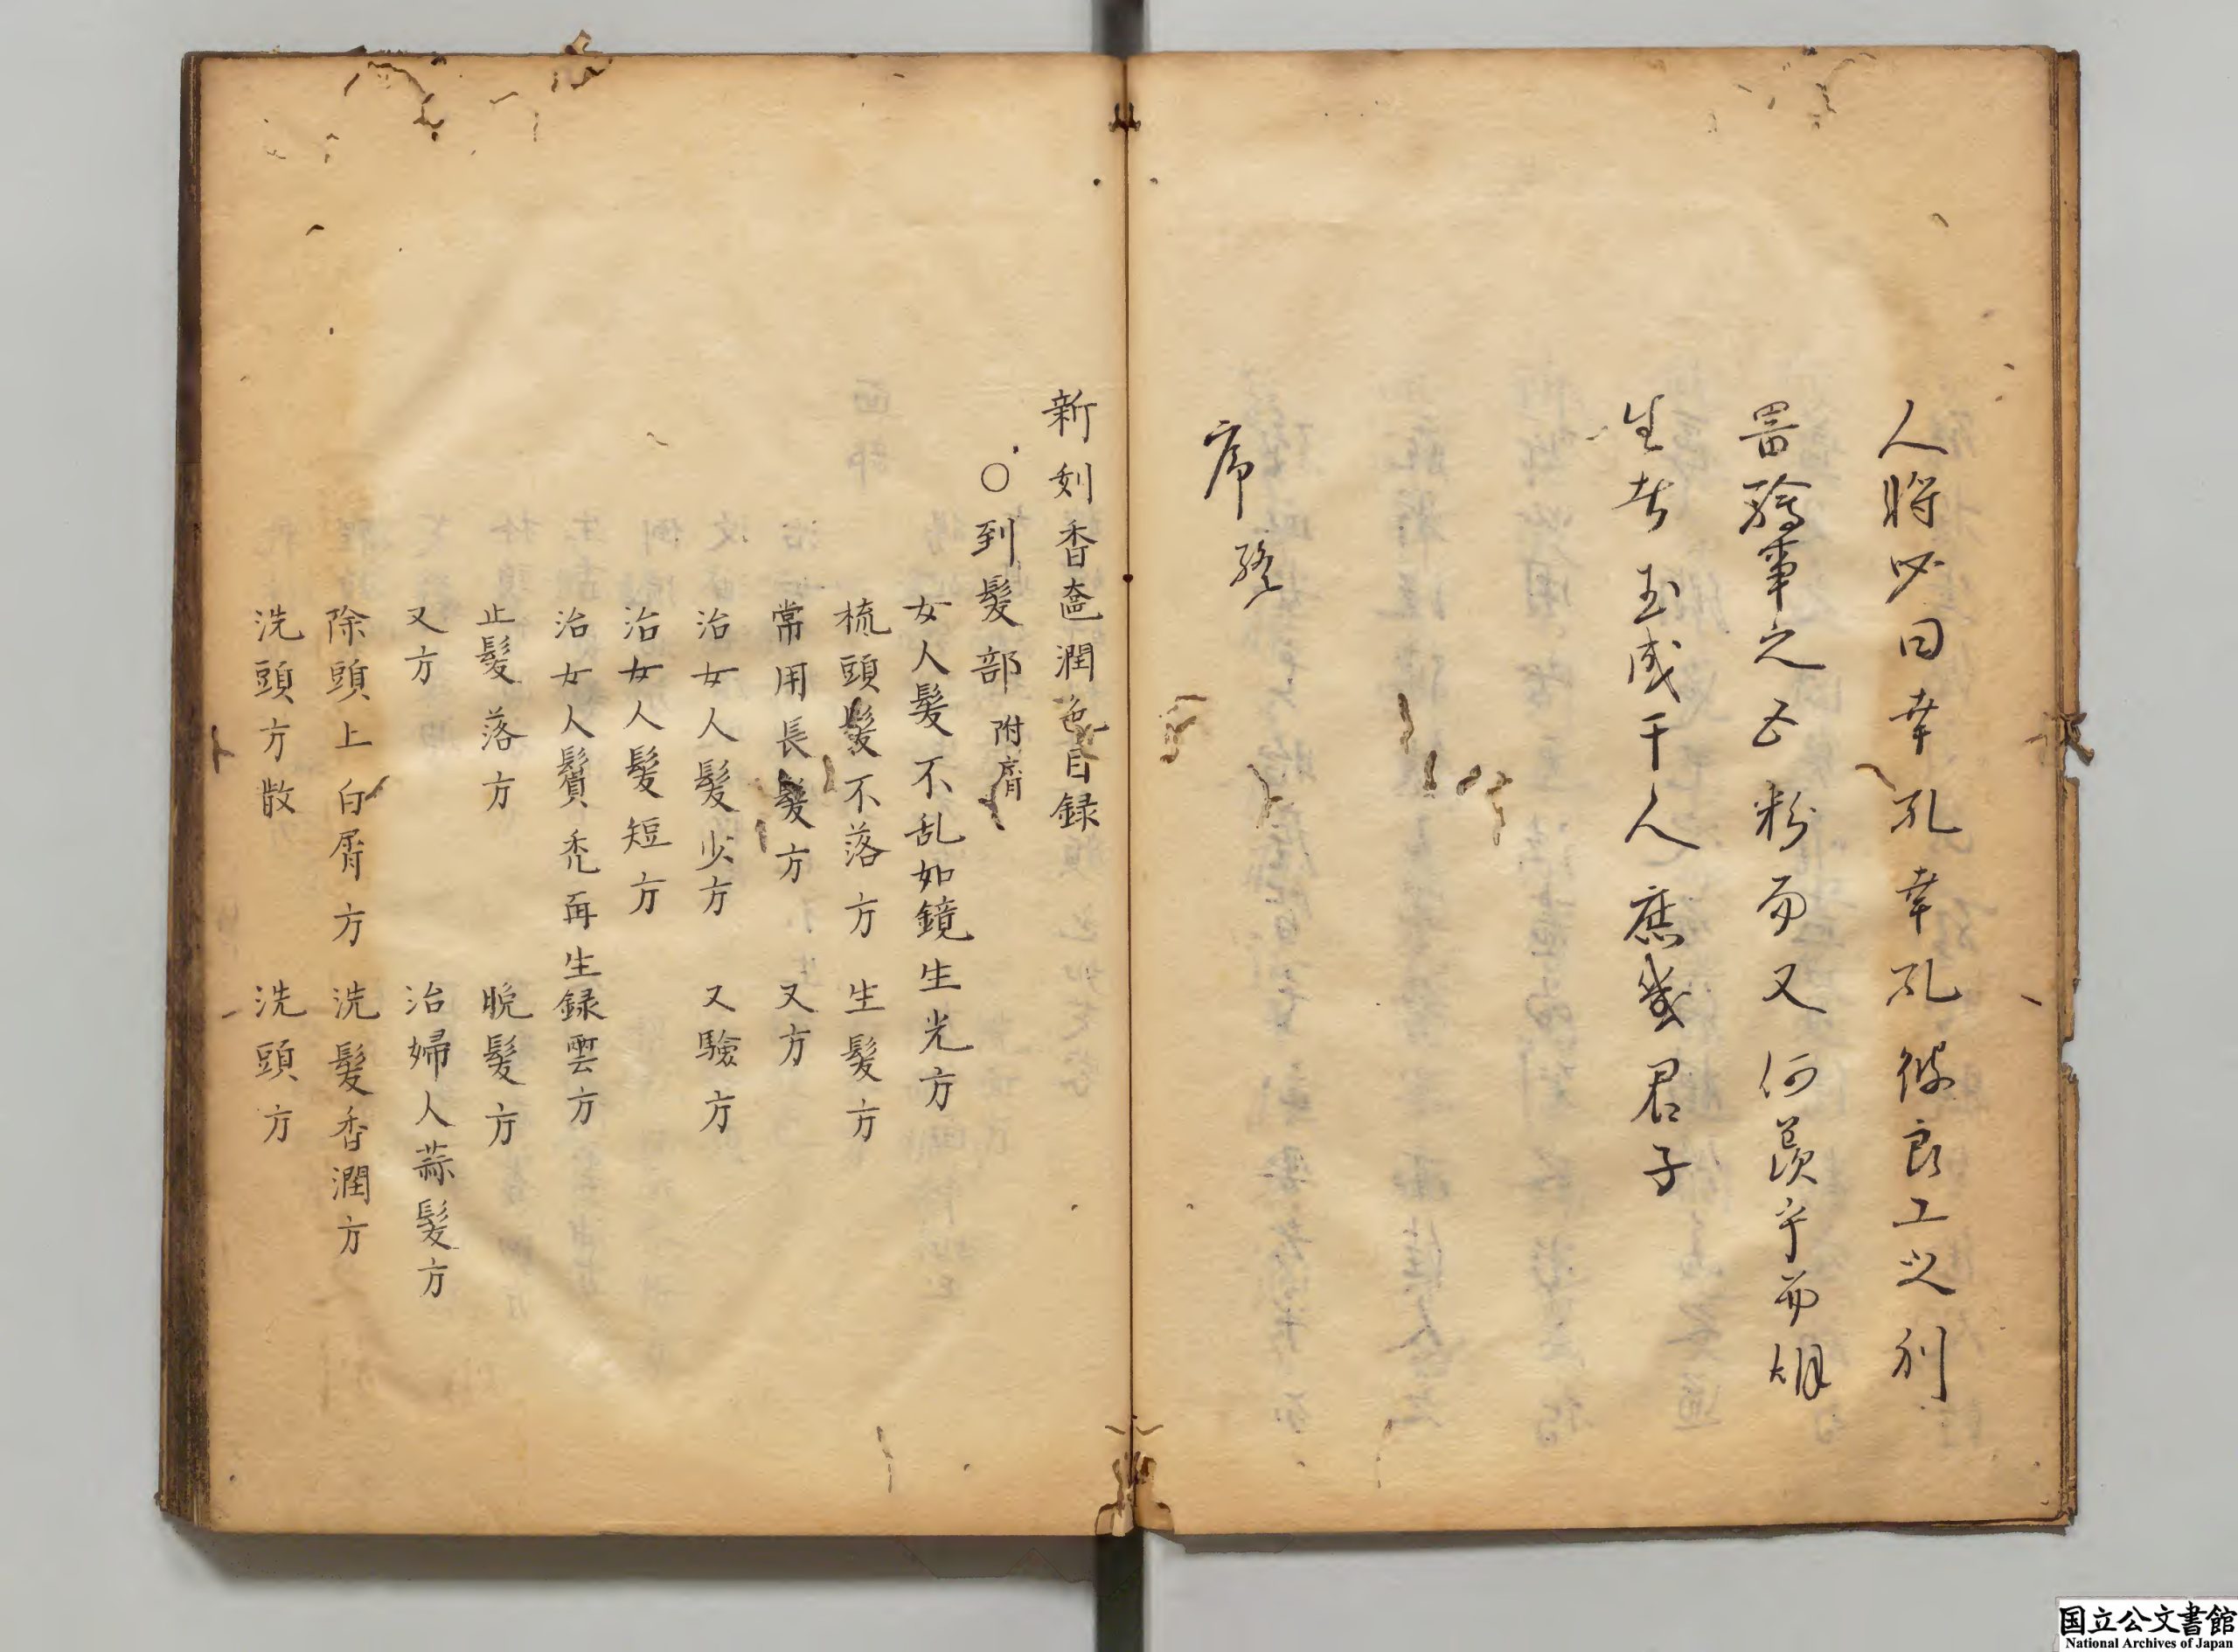 人將必曰幸孔幸孔彼良工之列
罟驕事之女粉而又何羨乎芾胡
生者玉成千人庶幾君子
序終
新刻香奩潤色目錄
○到髮部 附齊
女人髮不乱如鏡生光方
梳頭髮不落方 生髮方
常用長髮方 又方
治女人髮少方 又驗方
治女人髮短方
治女人鬢禿再生録雲方
止髮落方 脫髮方
又方 治婦人蒜髮方
除頭上白屑方 洗髮香潤方
洗頭方散 洗頭方
国立公文書館
National Archives of Japan